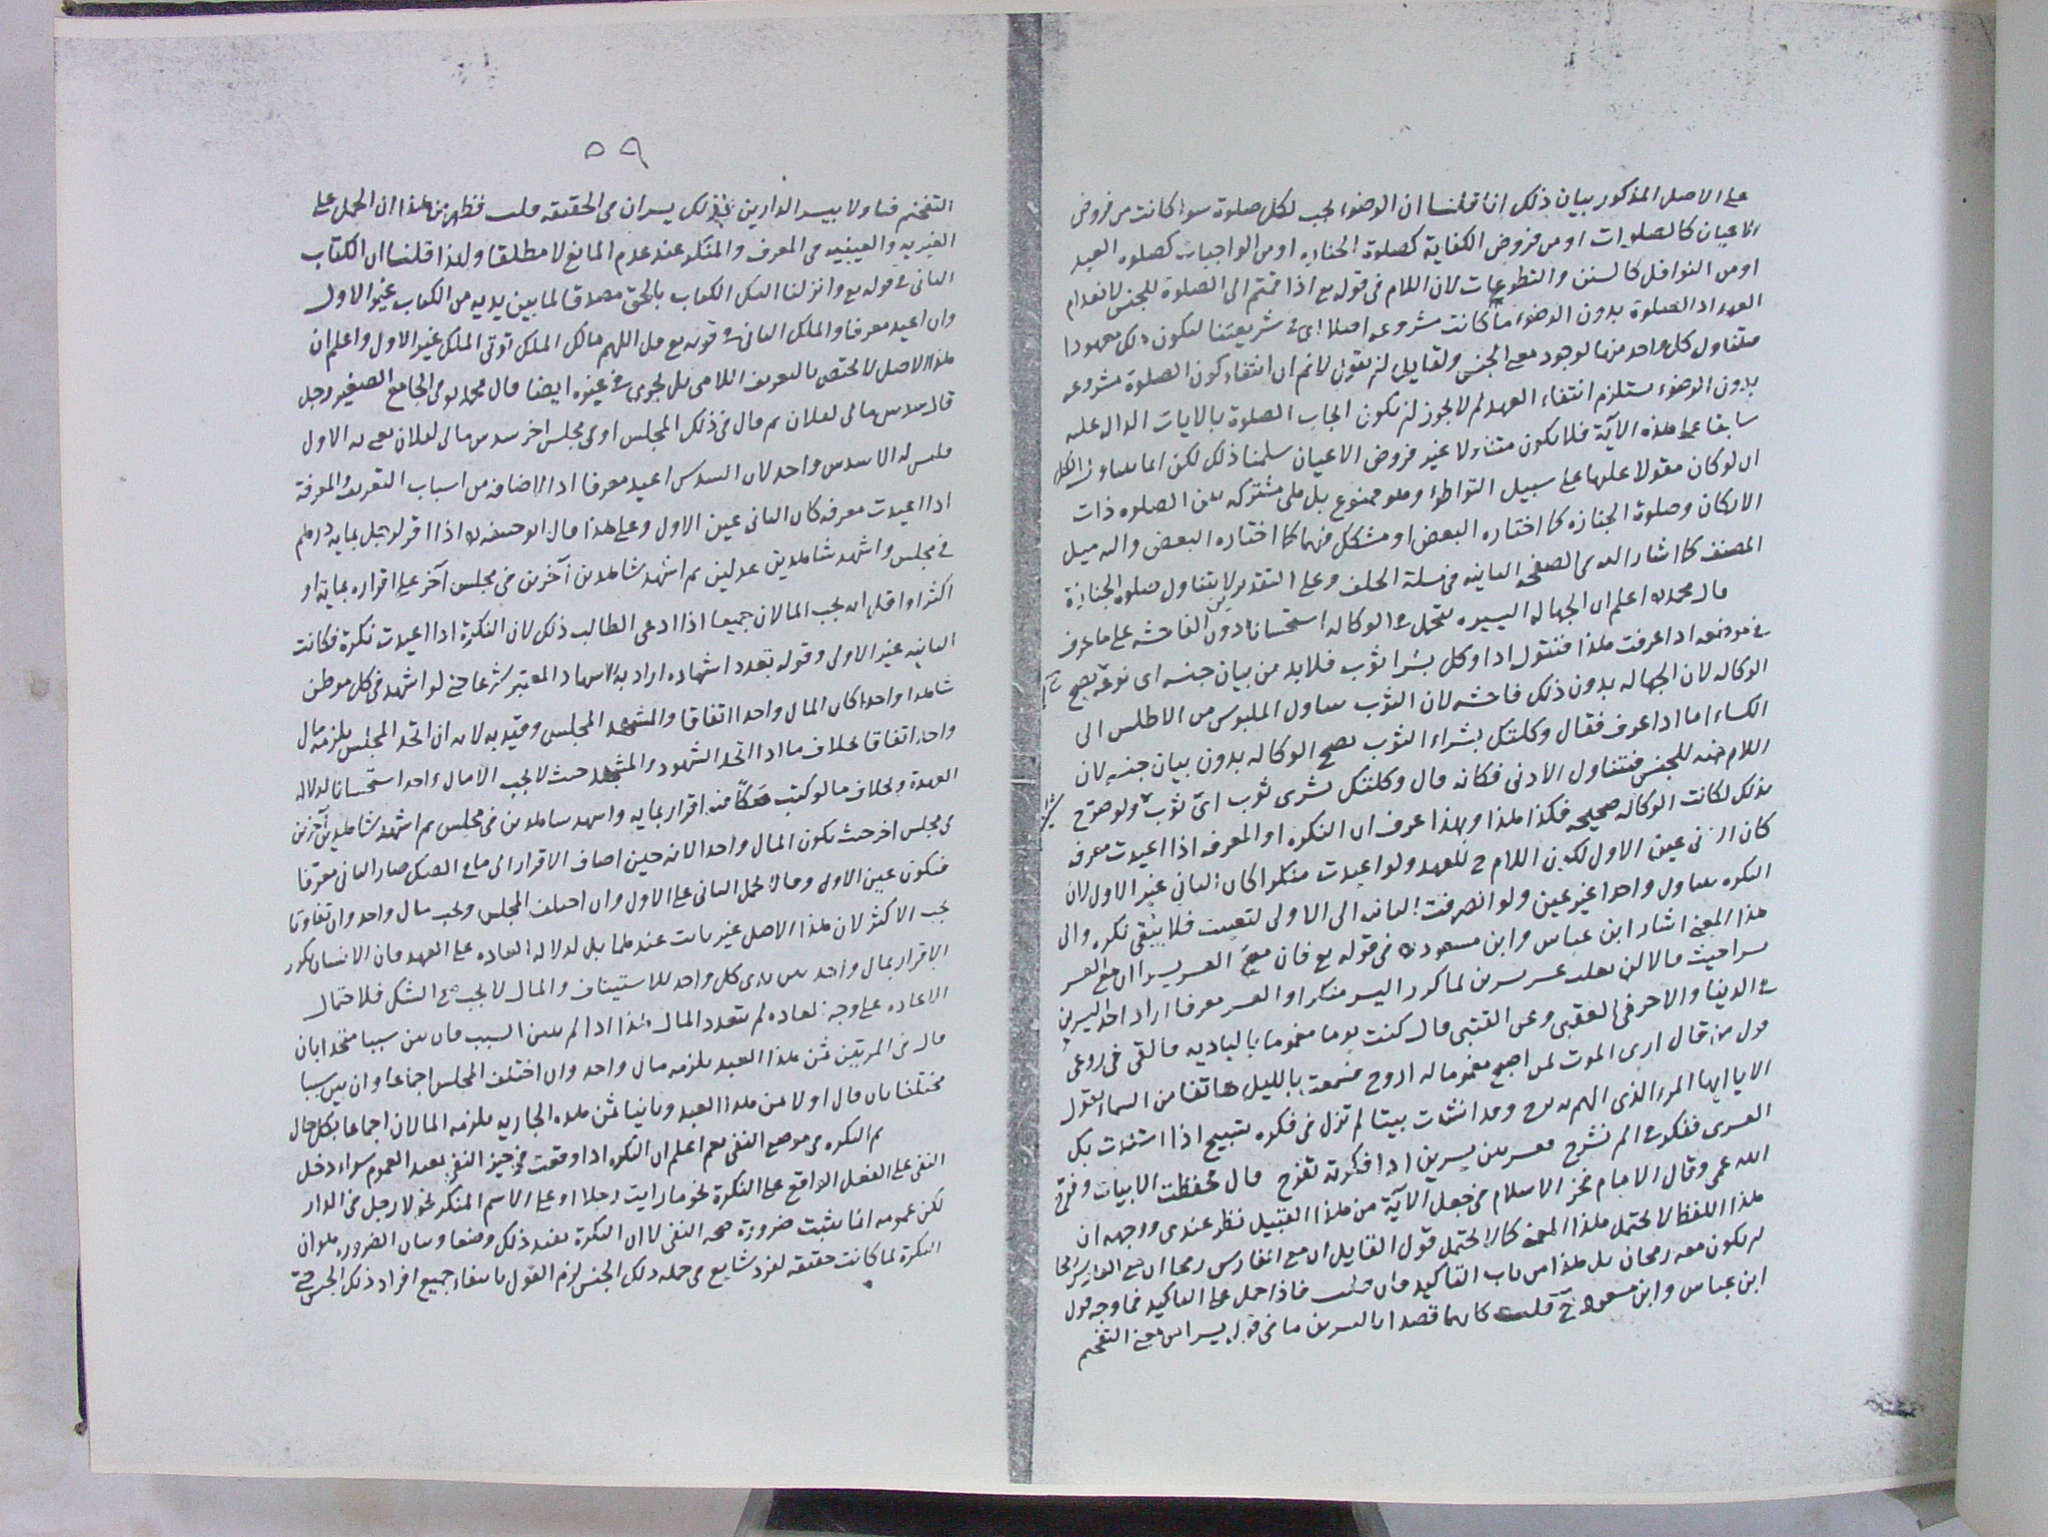 على الاصل المذكور بيان ذلك انا قلنا ان الوضوء يجب لكل صلوة سواء كانت من فروض
الاعيان كالصلوات او من فروض الكفاية كصلوة الجنازه او من الواجبات كصلوه العيد
او من النوافل كالسنن والتطوعات لان اللام فى قوله تع اذا قمتم الى الصلوة للجنس لانعدام
العهد اذ الصلوة بدون الوضوء ما كانت مشروعه اصلا اى فى شريعتنا ليكون ذلك معهودا
فتناول كل واحد منها لوجود معنى الجنس ولقايل ان يقول لانم ان انتفاء كون الصلوة مشروعه
بدون الوضوء يستلزم انتفاء العهد لم لا يجوز ان يكون ايجاب الصلوة بالايات الداله عليه
سابقا على هذه الآية فلا يكون متناولا غير فروض الاعيان سلمنا ذلك لكن انما يتناول الكل
ان لو كان مقولا عليها على سبيل التواطؤ وهو ممنوع بل هى مشتركه بين الصلوه ذات
الاركان وصلوة الجنازه كما اختاره البعض او مشكل فيهما كما اختاره البعض واليه ميل
المصنف كما اشار اليه فى الصفحه الثانيه فى مسئلة الحلف وعلى التقديرين لا يتناول صلوه الجنازة
قال محمد اعلم ان الجهاله اليسيره تتحمل فى الوكاله استحسانا دون الفاحشه على ما عرف
فى موضعه اذا عرفت هذا فنقول اذا وكل بشرا ثوب فلابد من بيان جنسه اى نوعه ليصح
الوكاله لان الجهاله بدون ذلك فاحشه لان الثوب يتناول الملبوس من الاطلس الى
الكساء اما اذا عرف فقال وكلتك بشراء الثوب يصح الوكاله بدون بيان جنسه لان
اللام فيه للجنس فتتناول الادنى فكانه قال وكلتك بشرى ثوب اى ثوب ولو صرح
بذلك لكانت الوكاله صحيحه فكذا هذا وبهذا عرف ان النكره او المعرفه اذا اعيدت معرفه
كان الثانى عين الاول لكون اللام ح للعهد ولو اعيدت منكرا كان الثانى غير الاول لان
النكره يتناول واحدا غير عين ولو انصرفت الثانيه الى الاولى لتعينت فلا يبقى نكره والى
هذا المعنى اشار ابن عباس وابن مسعود فى قوله تع فان مع العسر يسرا ان مع العسر
يسرا حيث قالا لن يغلب عسر يسرين لما كرر اليسر منكرا والعسر معرفا اراد احد اليسرين
فى الدنيا والاخر فى العقبى وعن القتبى قال كنت يوما مغموما بالباديه فالقى فى روعى
قول من قال ارى الموت لمن اصبح مغموما له اروح فسمعت بالليل هاتفا من السماء يقول
الا يا ايها المرء الذى الهم به برح وقد انشات بيتا لم تزل فى فكره تسبح اذا اشتدت بك
العسرى ففكر فى الم نشرح فعسر بين يسرين اذا فكرته تفرح قال فحفظت الابيات وفرج
الله عمى وقال الامام فخر الاسلام فى جعل الآية من هذا القبيل نظر عندى ووجهه ان
هذا اللفظ لا يحتمل هذا المعنى كما لا يحتمل قول القايل ان مع الفارس رمحا ان مع الفارس رمحا
ان يكون معه رمحان بل هذا من باب التاكيد فان قلت فاذا حمل على التاكيد فما وجه قول
ابن عباس وابن مسعود ح قلت كانهما قصدا باليسرين ما فى قوله يسرا من معنى التفخيم
٥٩
التفخيم فتاولا بيسر الدارين فذلك يسران فى الحقيقه قلت فظهر من هذا ان الحمل على
الغيريه والعينيه فى المعرف والمنكر عند عدم المانع لا مطلقا ولهذا قلنا ان الكتاب
الثانى فى قوله تع وانزلنا اليك الكتاب بالحق مصدقا لما بين يديه من الكتاب غير الاول
وان اعيد معرفا والملك الثانى فى قوله تع قل اللهم مالك الملك توتى الملك غير الاول واعلم ان
هذا الاصل لا يختص بالتعريف اللامى بل يجرى فى غيره ايضا قال محمد فى الجامع الصغير رجل
قال سدس مالى لفلان ثم قال فى ذلك المجلس او فى مجلس اخر سدس مالى لفلان يعنى به الاول
فليس له الا سدس واحد لان السدس اعيد معرفا اذ الاضافه من اسباب التعريف والمعرفة
اذا اعيدت معرفه كان الثانى عين الاول وعلى هذا قال ابو حنيفه اذا اقر لرجل بمايه درهم
فى مجلس واشهد شاهدين عدلين ثم اشهد شاهدين آخرين فى مجلس آخر على اقراره بمايه او
اكثر او اقل انه يجب المالان جميعا اذا ادعى الطالب ذلك لان النكرة اذا اعيدت نكرة فكانت
الثانيه غير الاولى وقوله بتعدد اشهاده اراد به الاشهاد المعتبر شرعا حتى لو اشهد فى كل موطن
شاهدا واحدا كان المال واحدا اتفاقا والمشهد المجلس وقيد به لانه ان اتحد المجلس يلزمه مال
واحد اتفاقا بخلاف ما اذا اتحد الشهود والمشهد حيث لا يجب الا مال واحد استحسانا لدلاله
العهدة وبخلاف ما لو كتب صكا فيه اقرار بمايه واشهد شاهدين فى مجلس ثم اشهد شاهدين آخرين
فى مجلس اخر حيث يكون المال واحدا لانه حين اضاف الاقرار الى ما فى الصك صار الثانى معرفا
فيكون عين الاول وقالا يحمل الثانى على الاول وان اختلف المجلس ويجب مال واحد وان تفاوتا
يجب الاكثر لان هذا الاصل غير ثابت عندهما بل لدلاله العاده على العهد فان الانسان يكرر
الاقرار بمال واحد بين يدى كل واحد للاستيثاق والمال لا يجب مع الشك فلاحتمال
الاعاده على وجه العاده لم يتعدد المال هذا اذا لم يبين السبب فان بين سببا متحدا بان
قال فى المرتين ثمن هذا العبد يلزمه مال واحد وان اختلف المجلس اجماعا وان بين سببا
مختلفا بان قال اولا ثمن هذا العبد وثانيا ثمن هذه الجاريه يلزمه المالان اجماعا بكل حال
ثم النكره فى موضع النفى يعم اعلم ان النكره اذا وقعت فى حيز النفى يفيد العموم سواء دخل
النفى على الفعل الواقع على النكرة نحو ما رايت رجلا او على الاسم المنكر نحو لا رجل فى الدار
لكن عمومه انما يثبت ضرورة صحه النفى لا ان النكرة يفيد ذلك وضعا وبيان الضروره هو ان
النكرة لما كانت حقيقه لفرد شايع فى جمله ذلك الجنس لزم القول بانتفاء جميع افراد ذلك الجنس حتى